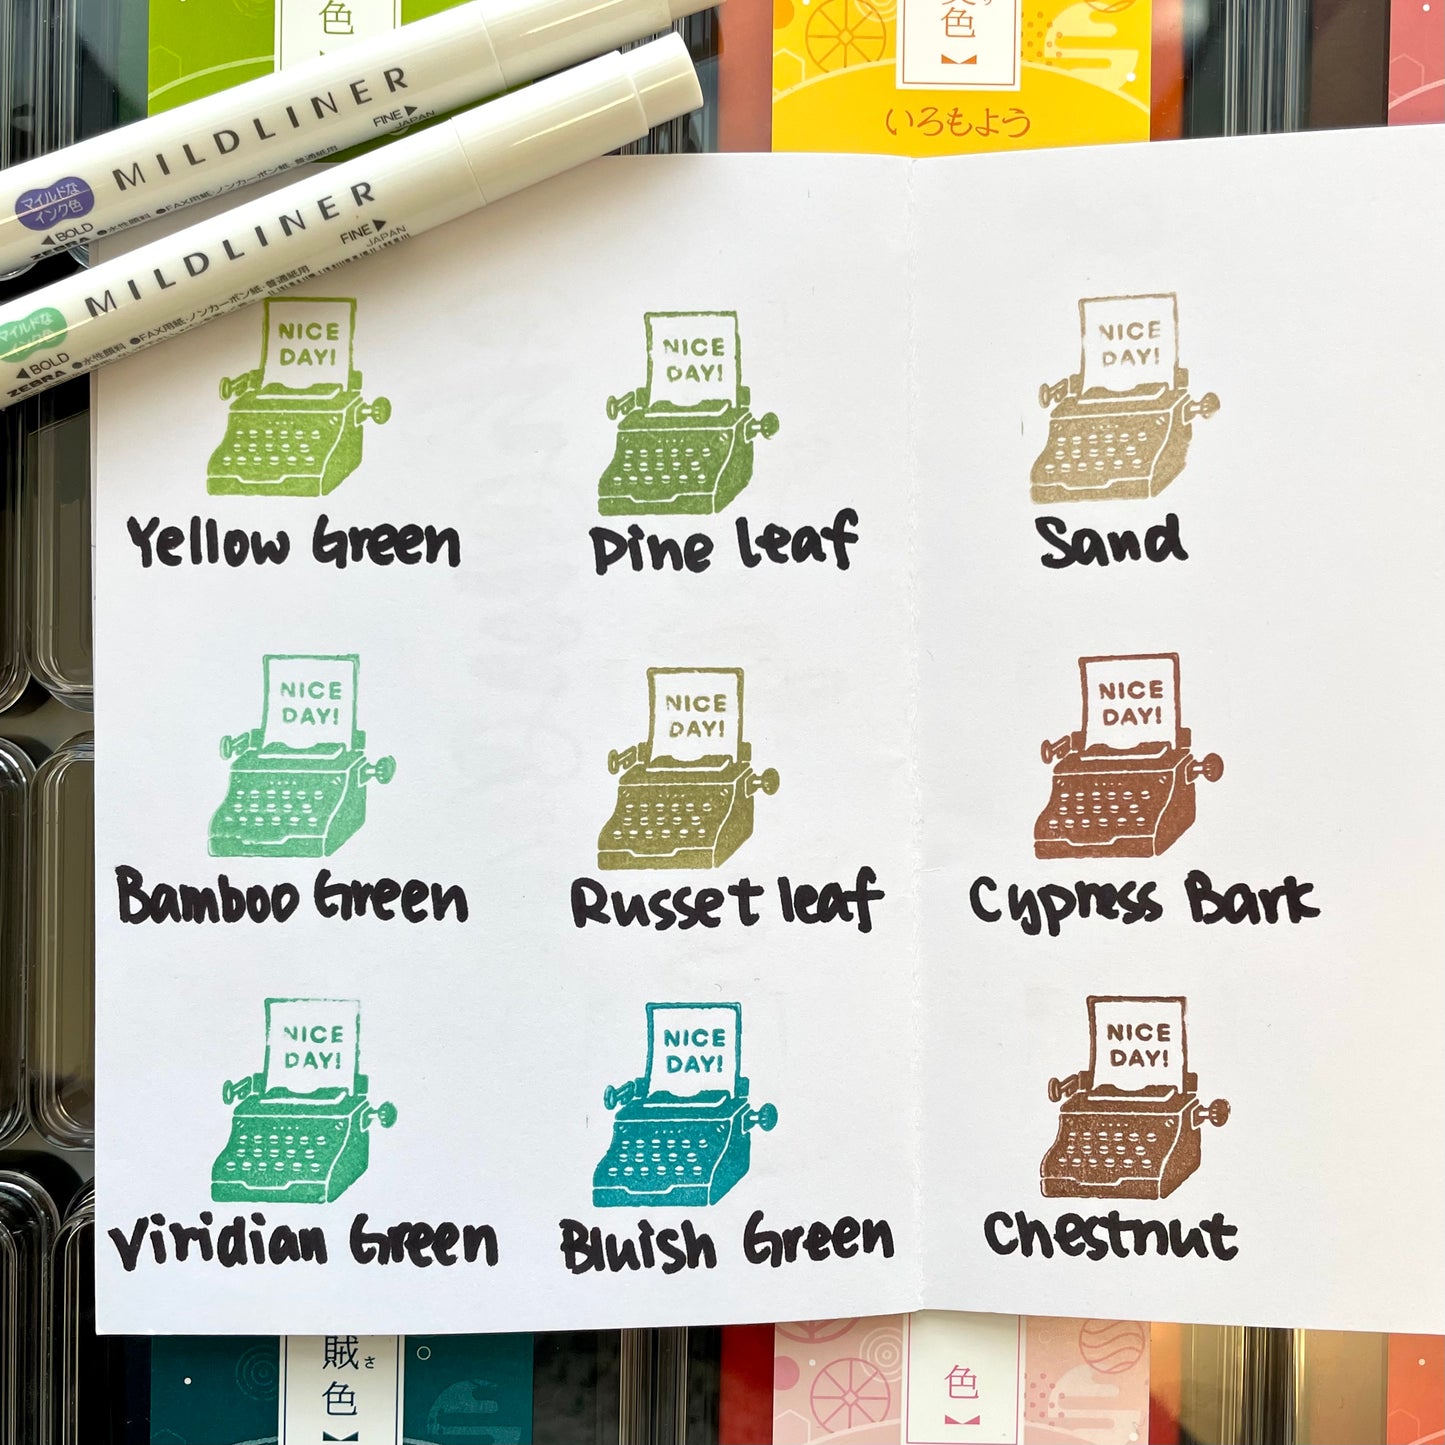 色
色
いろもよう
MILDLINER
FINE▶
JAPAN
マイルドな
インク色
◀BOLD
●水性顔料 ●FAX用紙・ノンカーボン紙・普通紙用
ZEBRA
MILDLINER
FINE▶
JAPAN
マイルドな
インク色
◀BOLD
●水性顔料 ●FAX用紙・ノンカーボン紙・普通紙用
ZEBRA
NICE
DAY!
NICE
DAY!
NICE
DAY!
Yellow Green
Pine leaf
Sand
NICE
DAY!
NICE
DAY!
NICE
DAY!
Bamboo Green
Russet leaf
Cypress Bark
NICE
DAY!
NICE
DAY!
NICE
DAY!
Viridian Green
Bluish Green
Chestnut
賊さ
色
色